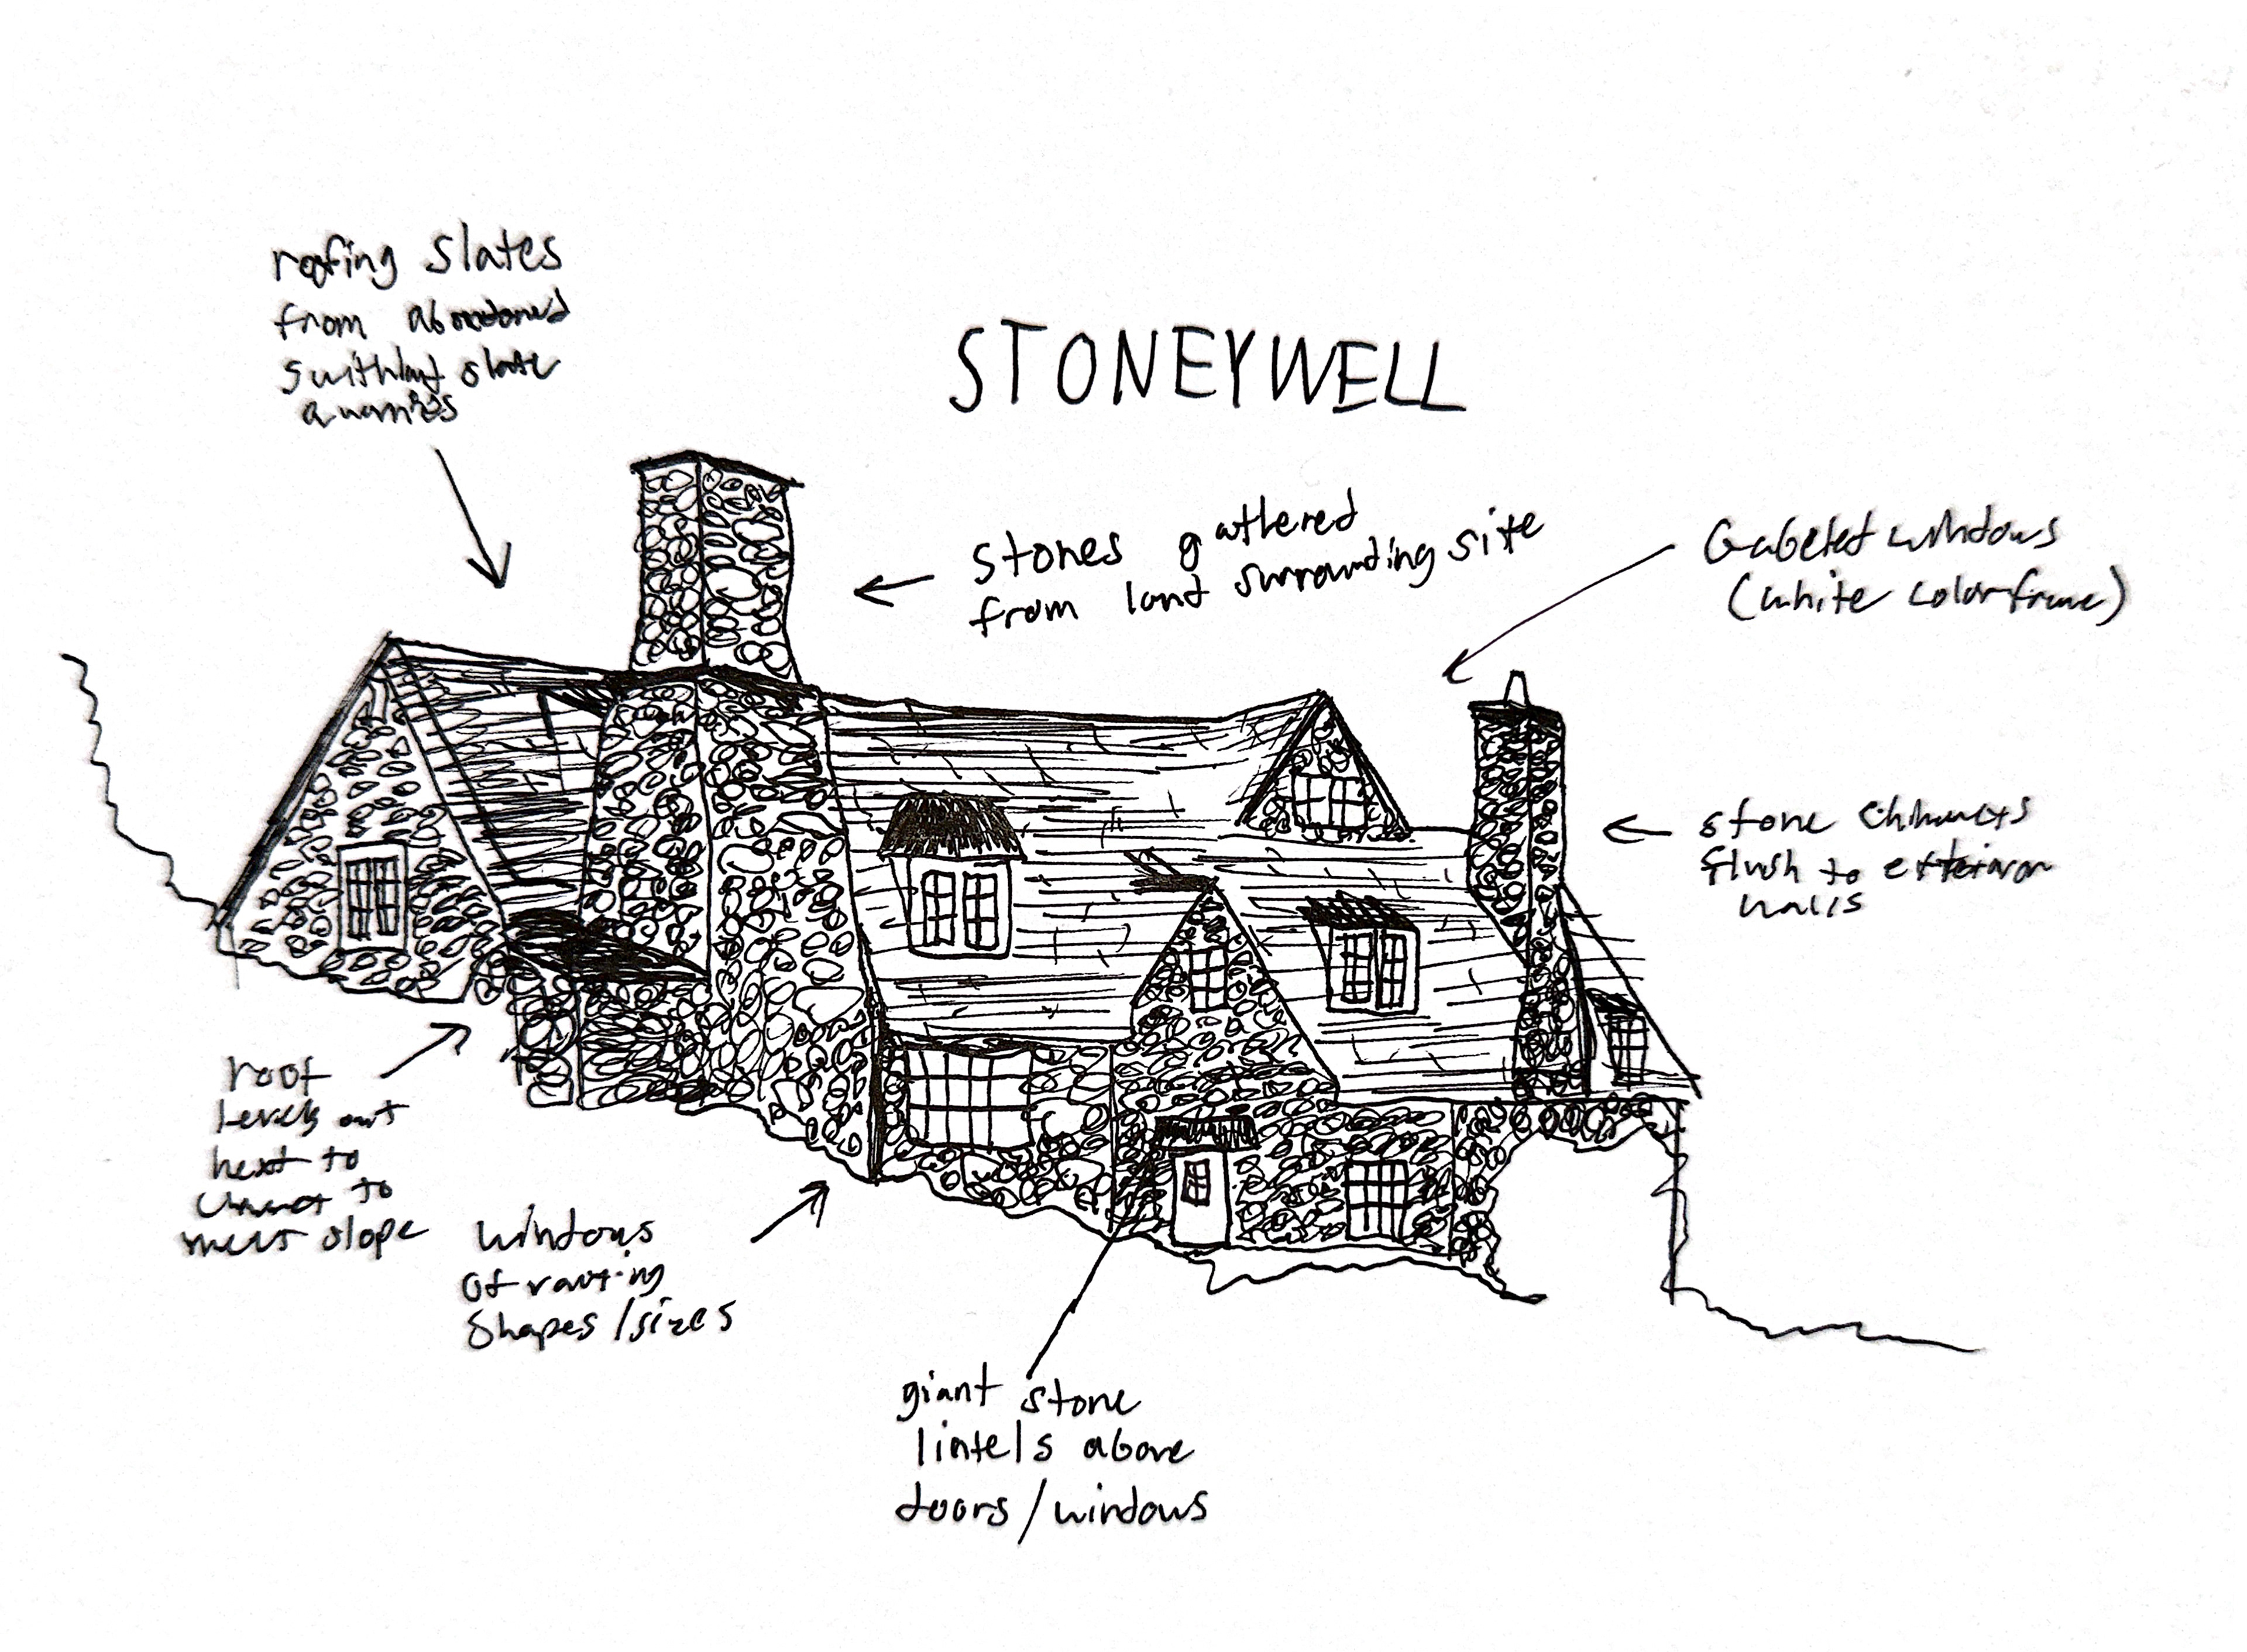 roofing slates
from abandoned
Swithland slate
quarries
STONEYWELL
stones gathered
from land surrounding site
Gabeled windows
(white color frame)
stone chimneys
flush to exterior
walls
roof
levels out
next to
to
meet slope
windows
of varying
shapes/sizes
giant stone
lintels above
doors/windows